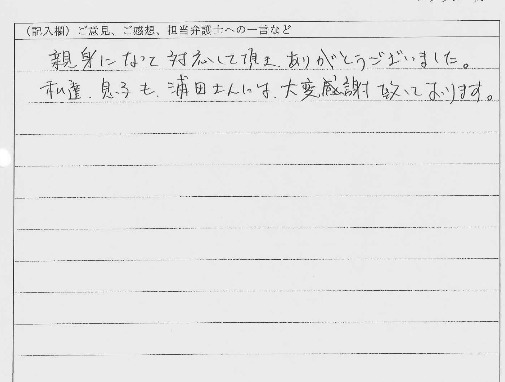 (記入欄)ご意見、ご感想、担当弁護士への一言など
親身になって対応して頂き、ありがとうございました。
私達、息子も、浦田さんには、大変感謝致しております。